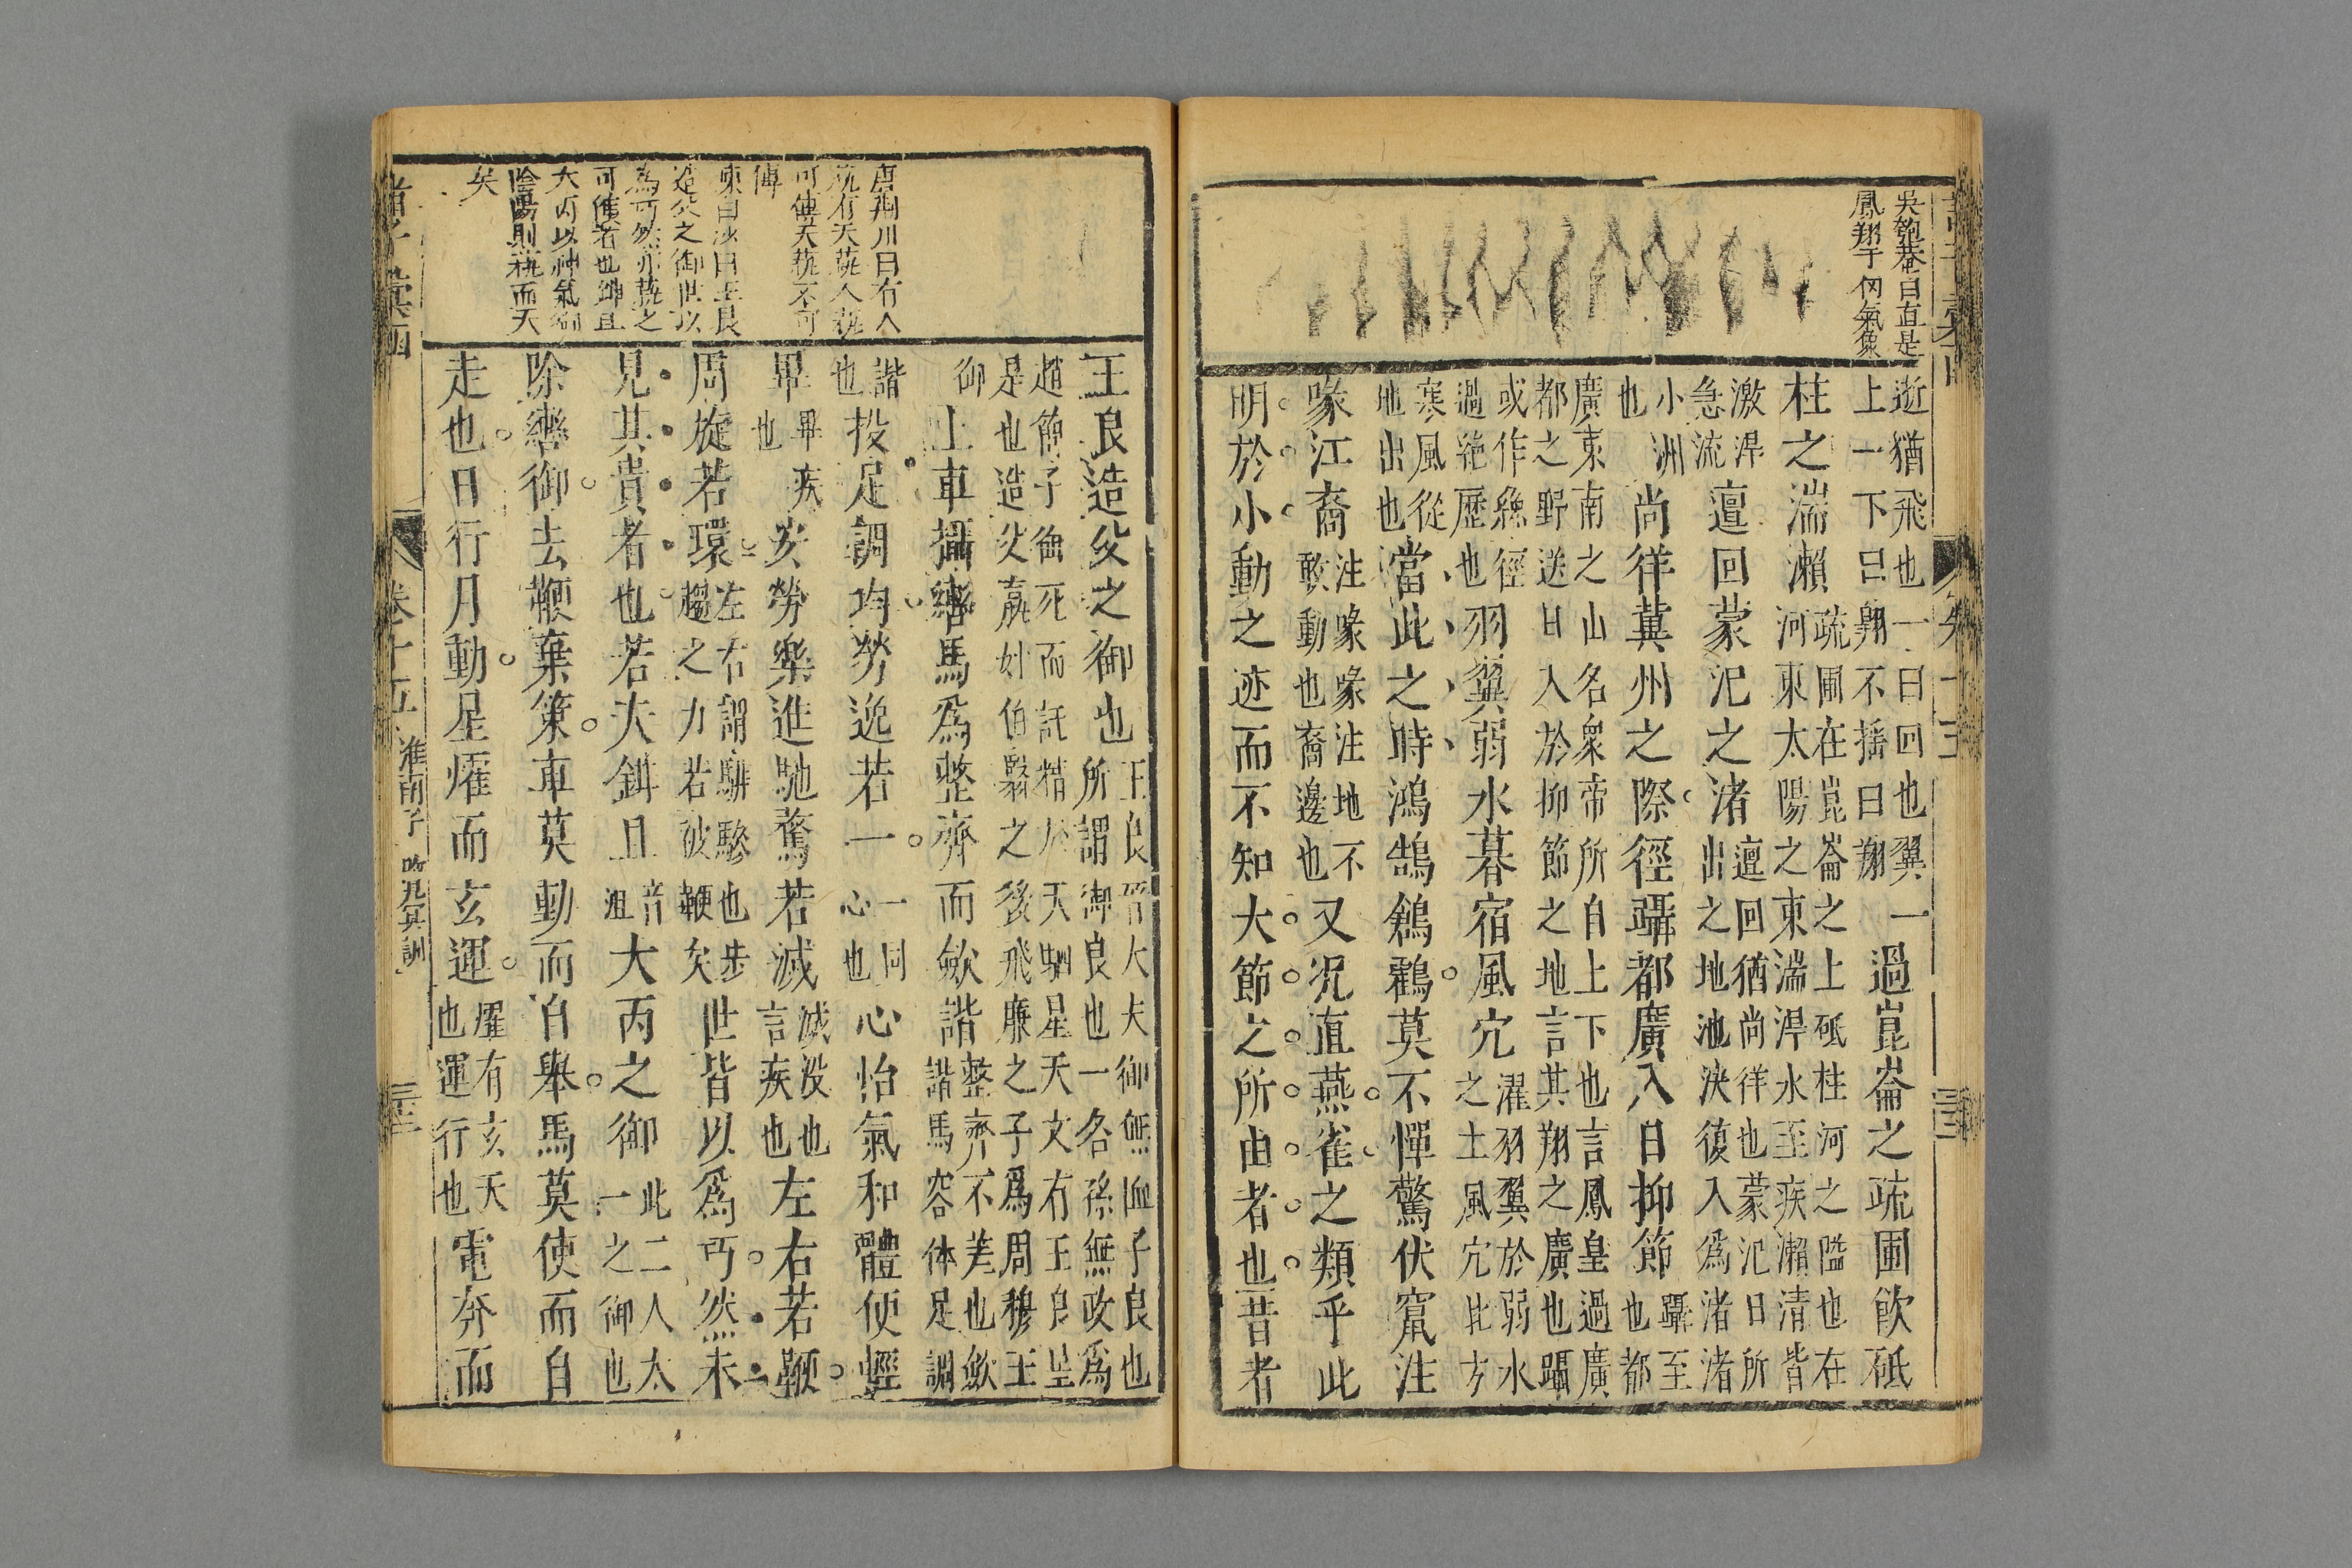 吳匏菴曰直是
鳳翔千仞氣象
逝猶飛也一曰回也翼一
上一下曰翺不搖曰翔
過崑崙之疏圃飲砥
柱之湍瀨
疏圃在崑崙之上砥柱河之隘也在
河東太陽之東湍涆水至疾瀨清皆
激涆
急流
邅回蒙汜之渚
邅回猶尚徉也蒙汜日所
出之地池決復入爲渚渚
小洲
也
尚徉冀州之際徑躡都廣入日抑節
躡至
也都
廣東南之山名衆帝所自上下也言鳳皇過廣
都之野送日入於抑節之地言其翔之廣也躡
或作絲徑
過絶歷也
羽翼弱水暮宿風穴
濯羽翼於弱水
之土風穴北方
寒風從
地出也
當此之時鴻鵠鶬鸖莫不憚驚伏竄注
喙江裔
注喙喙注地不
敢動也裔邊也
又況直燕雀之類乎此
明於小動之迹而不知大節之所由者也昔者
唐荆川曰有人
巧有天巧人巧
可傳天巧不可
傳
陳白沙曰王良
造父之御世以
爲巧然亦巧之
可傳者也鉗且
大丙以神氣御
陰陽則巧而天
矣
王良造父之御也
王良晉大夫御無恤子良也
所謂御良也一名孫無政爲
趙簡子御死而託精於天駟星天文有王良星
是也造父嬴姓伯翳之後飛廉之子爲周穆王
御
上車攝轡馬爲整齊而歛諧
整齊不差也歛
諧馬容体足調
諧
也
投足調均勞逸若一
一同
心也
心怡氣和體便輕
畢
畢疾
也
安勞樂進馳騖若滅
滅没也
言疾也
左右若鞭
周旋若環
左右謂騑驂也步
趨之力若被鞭矣
世皆以爲巧然未
見其貴者也若夫鉗且
音
沮
大丙之御
此二人太
一之御也
除轡御去鞭棄策車莫動而自舉馬莫使而自
走也日行月動星燿而玄運
燿有玄天
也運行也
電奔而
卷十五
淮南子
三十二